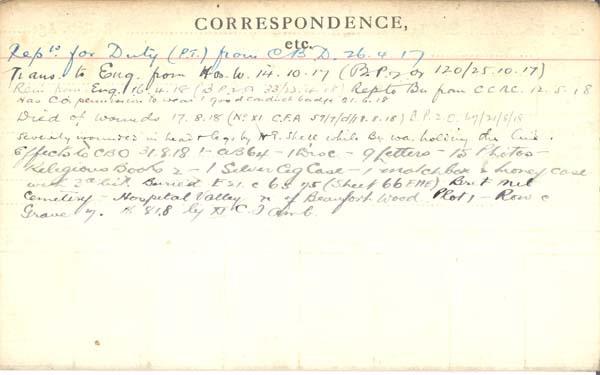 CORRESPONDENCE,
etc.
Rep'ts for Duty (P.T.) from C.B.D. 26.4.17
Trans. to Eng. from Hos. W. 14.10.17 (B.2.P. or 120/25.10.17)
Rein from Eng. 16.4.18 (B.P.2.O 33/23.4.18) Rep to Bn from C.C.R.C. 12.5.18
Has C.O. permission to wear 1 good conduct badge 21.6.18
Died of wounds 17.8.18 (No 41 C.F.A 57/7/d/19.8.18) B.P.2.O. 67/21/8/18
Severely wounded in head & legs by H.E. Shell while Bn was holding the line.
Effects to CBO 31.8.18 1- AB64 - 1 Disc - 9 letters - 15 Photos -
Religious Books 2 - 1 Silver Cig Case - 1 match box & money case
with 3d bit. Buried E21. c 63 75 (Sheet 66 E NE) Brit Mil
Cemetery - Hospital Valley n of Beaufort Wood Plot 1 - Row C
Grave 7. 18.8.18 by C.F. Amb.